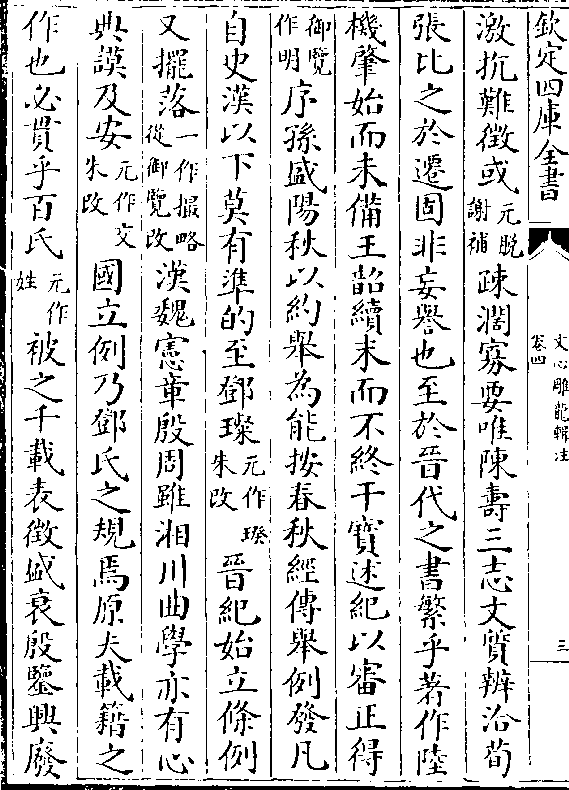 欽定四庫全書
文心雕龍輯注
卷四
三
激抗難徵或元脫謝補踈濶寡要唯陳壽三志文質辨洽荀
張比之於遷固非妄譽也至於晉代之書繁乎著作陸
機肇始而未備王韶續末而不終干寳述紀以審正得
御覽作明序孫盛陽秋以約舉為能按春秋經傳舉例發凡
自史漢以下莫有準的至鄧璨元作㻮朱改晉紀始立條例
又擺落一作撮略從御覽改漢魏憲章殷周雖湘川曲學亦有心
典謨及安元作交朱改國立例乃鄧氏之規焉原夫載籍之
作也必貫乎百氏元作姓被之千載表徵盛衰殷鑒興廢